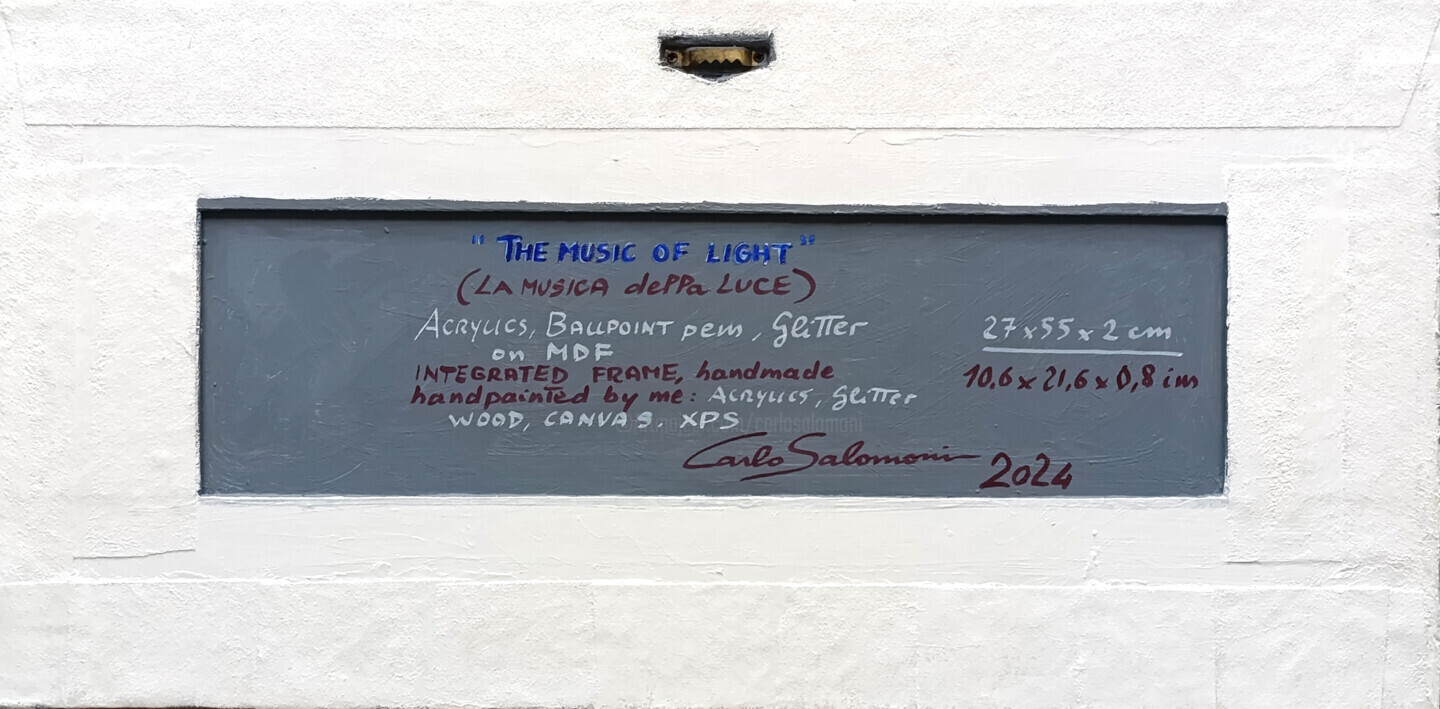 " THE MUSIC OF LIGHT "
(LA MUSICA della LUCE)
ACRYLICS, BALLPOINT pen, Glitter
on MDF
27x55x2 cm
INTEGRATED FRAME, handmade
10,6 x 21,6 x 0,8 in
handpainted by me: ACRYLICS, Glitter
WOOD, CANVAS, XPS
Carlo Salomoni 2024